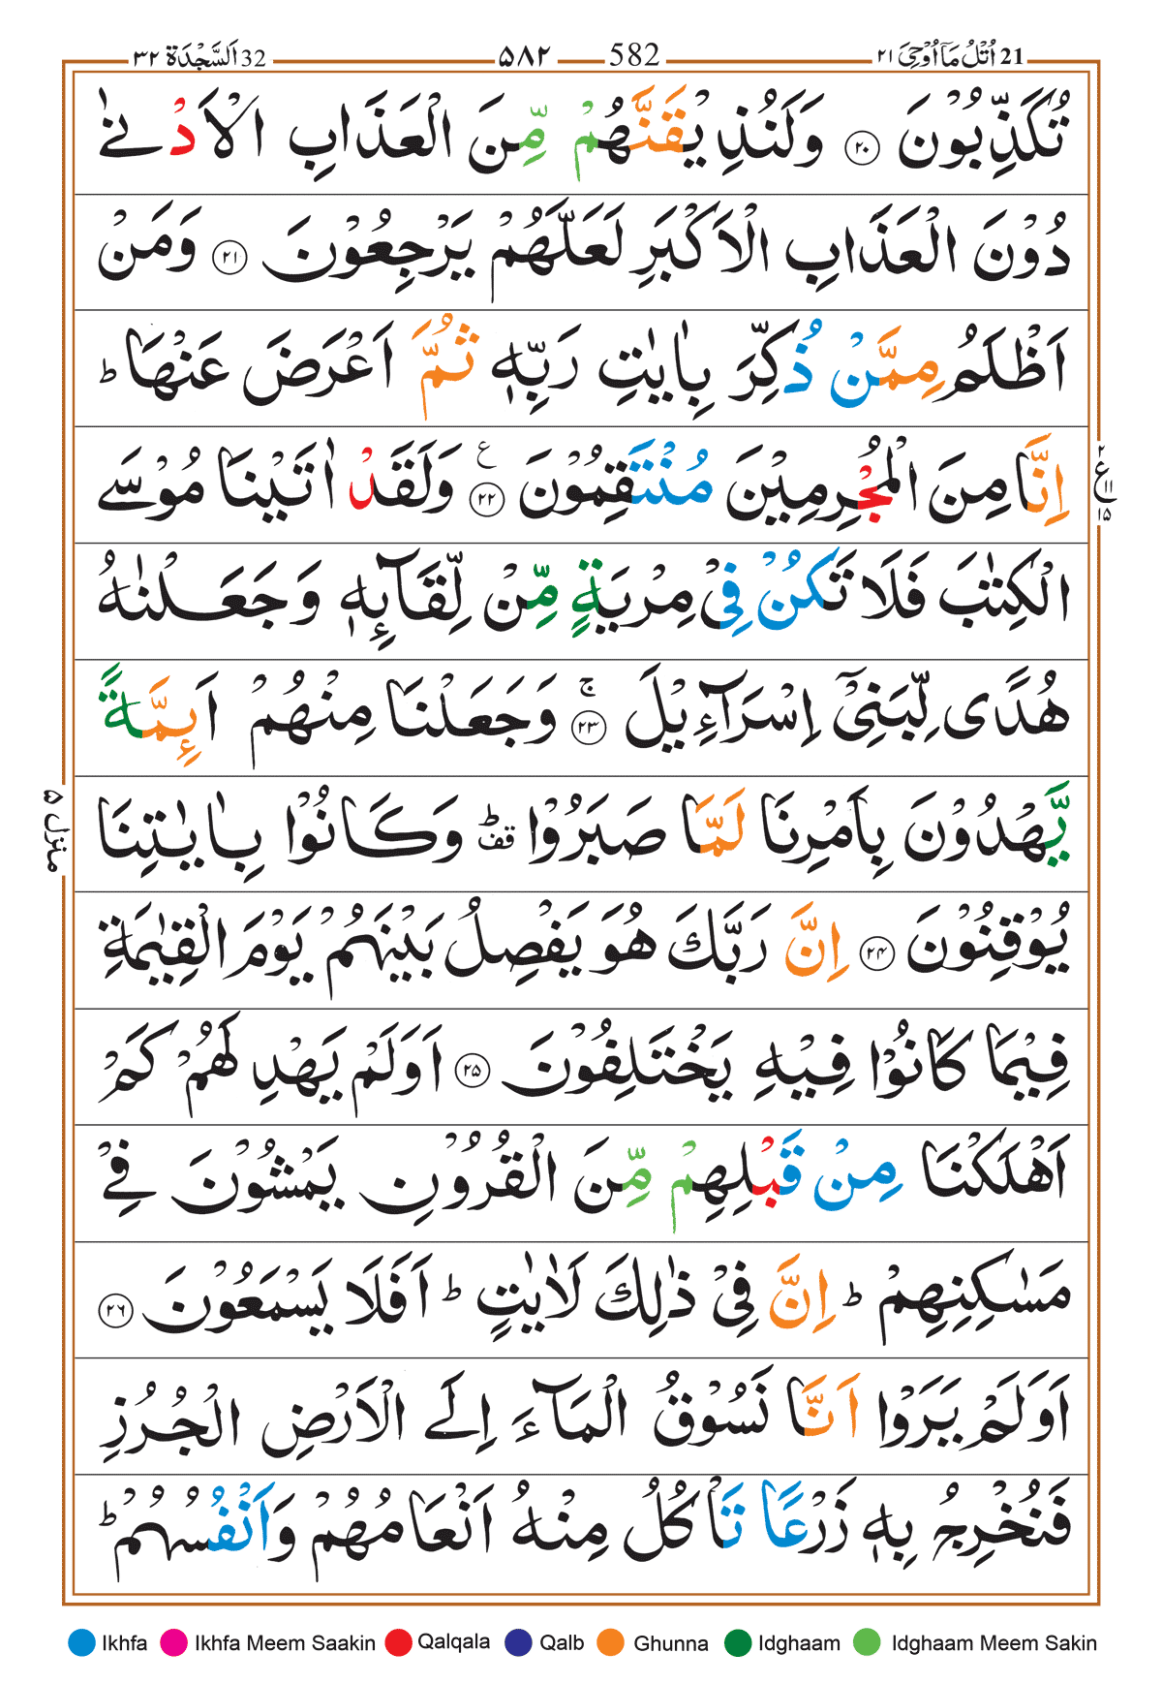 21 اُتْلُ مَاۤ اُوْحِیَ ۲۱ 582 ۵۸۲ 32 اَلسَّجْدَة ۳۲
تُكَذِّبُوْنَ ۲۰ وَلَنُذِیْقَنَّهُمْ مِّنَ الْعَذَابِ الْاَدْنٰی
دُوْنَ الْعَذَابِ الْاَكْبَرِ لَعَلَّهُمْ یَرْجِعُوْنَ ۲۱ وَمَنْ
اَظْلَمُ مِمَّنْ ذُكِّرَ بِاٰیٰتِ رَبِّهٖ ثُمَّ اَعْرَضَ عَنْهَا ؕ
اِنَّا مِنَ الْمُجْرِمِیْنَ مُنْتَقِمُوْنَ ۲۲ ع وَلَقَدْ اٰتَیْنَا مُوْسَی
۲ ع ۱۱ ۱۵
الْكِتٰبَ فَلَا تَكُنْ فِیْ مِرْیَةٍ مِّنْ لِّقَآىِٕهٖ وَجَعَلْنٰهُ
هُدًی لِّبَنِیْۤ اِسْرَآءِیْلَ ۲۳ ۚ وَجَعَلْنَا مِنْهُمْ اَىِٕمَّةً
یَّهْدُوْنَ بِاَمْرِنَا لَمَّا صَبَرُوْا ؕ قف وَكَانُوْا بِاٰیٰتِنَا
منزل ۵
یُوْقِنُوْنَ ۲۴ اِنَّ رَبَّكَ هُوَ یَفْصِلُ بَیْنَهُمْ یَوْمَ الْقِیٰمَةِ
فِیْمَا كَانُوْا فِیْهِ یَخْتَلِفُوْنَ ۲۵ اَوَلَمْ یَهْدِ لَهُمْ كَمْ
اَهْلَكْنَا مِنْ قَبْلِهِمْ مِّنَ الْقُرُوْنِ یَمْشُوْنَ فِیْ
مَسٰكِنِهِمْ ؕ اِنَّ فِیْ ذٰلِكَ لَاٰیٰتٍ ؕ اَفَلَا یَسْمَعُوْنَ ۲۶
اَوَلَمْ یَرَوْا اَنَّا نَسُوْقُ الْمَآءَ اِلَی الْاَرْضِ الْجُرُزِ
فَنُخْرِجُ بِهٖ زَرْعًا تَاْكُلُ مِنْهُ اَنْعَامُهُمْ وَاَنْفُسُهُمْ ؕ
Ikhfa Ikhfa Meem Saakin Qalqala Qalb Ghunna Idghaam Idghaam Meem Sakin